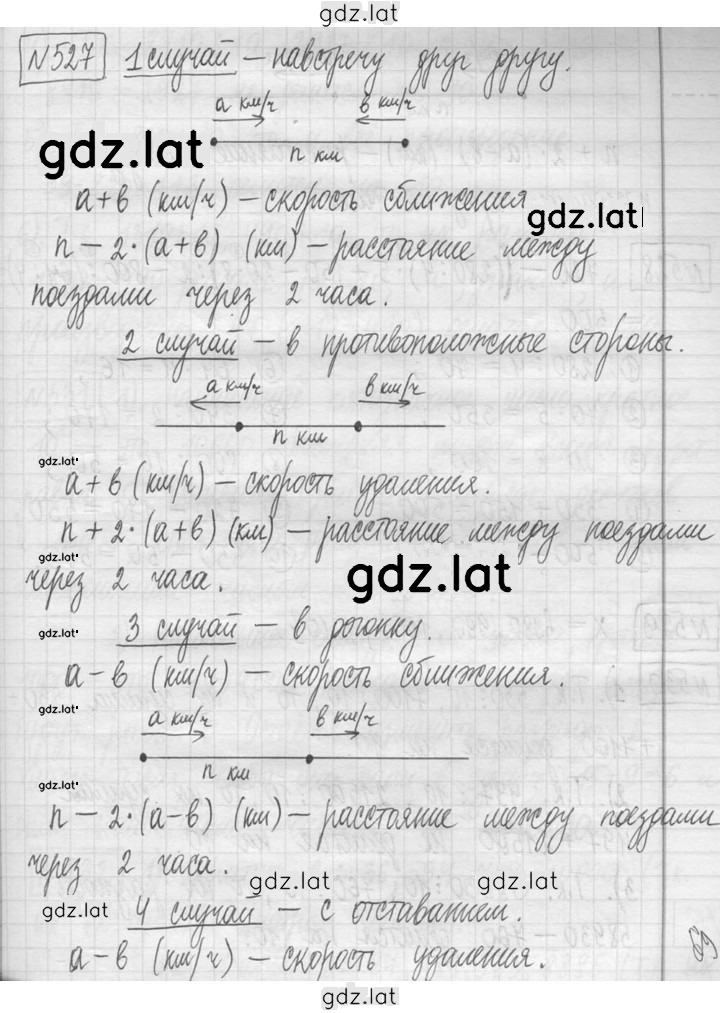 gdz.lat
№527 1 случай – навстречу друг другу.
а км/ч в км/ч
gdz.lat
n км
а+в (км/ч) – скорость сближения
gdz.lat
n – 2·(а+в) (км) – расстояние между
поездами через 2 часа.
2 случай – в противоположные стороны.
а км/ч в км/ч
n км
gdz.lat
а+в (км/ч) – скорость удаления.
gdz.lat
n + 2·(а+в) (км) – расстояние между поездами
gdz.lat
через 2 часа.
gdz.lat
3 случай – в догонку.
gdz.lat
а – в (км/ч) – скорость сближения.
gdz.lat
а км/ч в км/ч
n км
gdz.lat
n – 2·(а–в) (км) – расстояние между поездами
через 2 часа.
gdz.lat gdz.lat
gdz.lat
4 случай – с отставанием.
а – в (км/ч) – скорость удаления.
69
gdz.lat